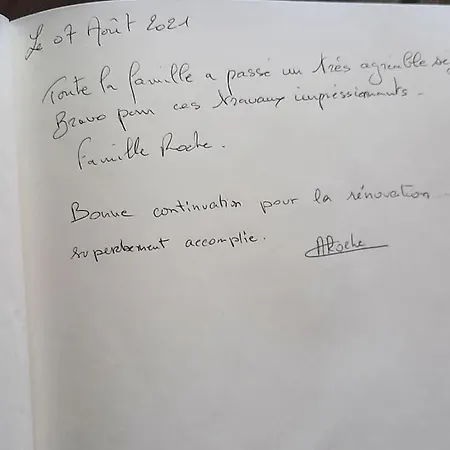 Le 07 Août 2021
Toute la famille a passé un très agréable
Bravo pour ces travaux impréssionnants.
Famille Roche.
Bonne continuation pour la rénovation
superbement accomplie.
ARoche